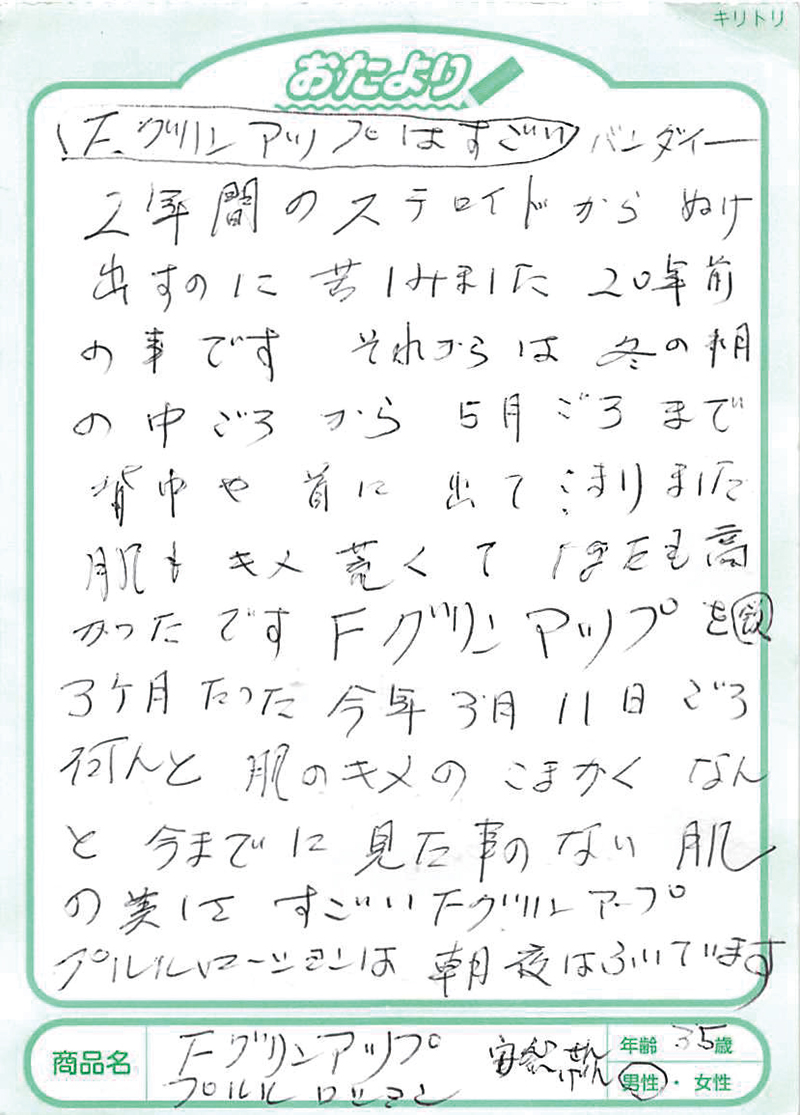 キリトリ
おたより
Fグリンアップはすごい バンダイー
2年間のステロイドからぬけ
出すのに苦しみました 20年前
の事です それからは冬の期
の中ごろから5月ごろまで
背中や首に出てこまりました
肌もキメ荒くて 高
かったです Fグリンアップを飲
3ケ月たった今年3月11日ごろ
何んと肌のキメのこまかくなん
と今までに見た事のない肌
の美しさすごいFグリンアープ
プルルローションは朝夜はぶいています
商品名 Fグリンアップ
プルルロッション
年齢 35歳
男性・女性